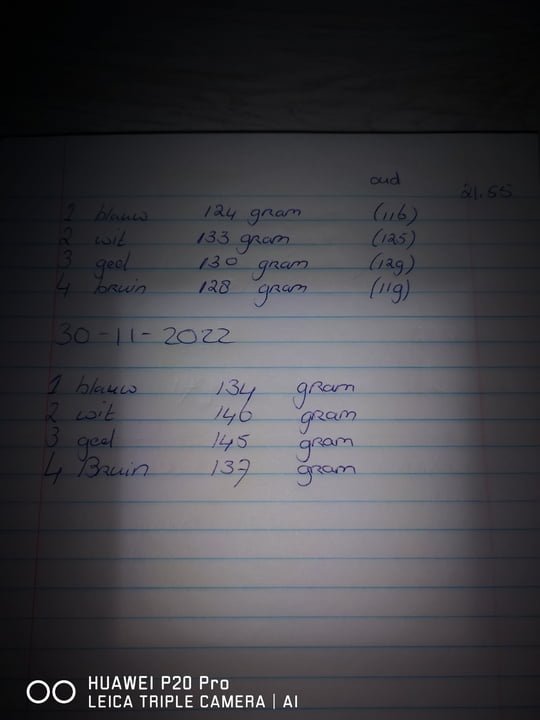 oud
21.55
1 blauw 124 gram (116)
2 wit 133 gram (125)
3 geel 130 gram (129)
4 bruin 128 gram (119)
30-11-2022
1 blauw 134 gram
2 wit 146 gram
3 geel 145 gram
4 Bruin 137 gram
HUAWEI P20 Pro
LEICA TRIPLE CAMERA | AI